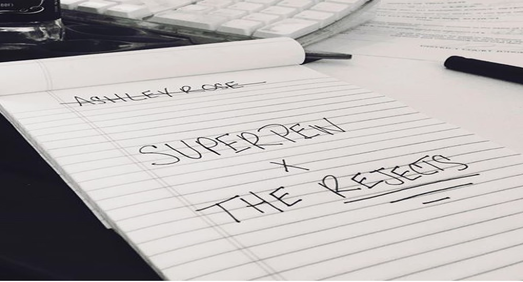 ASHLEY ROSE
SUPERPEN
X
THE REJECTS